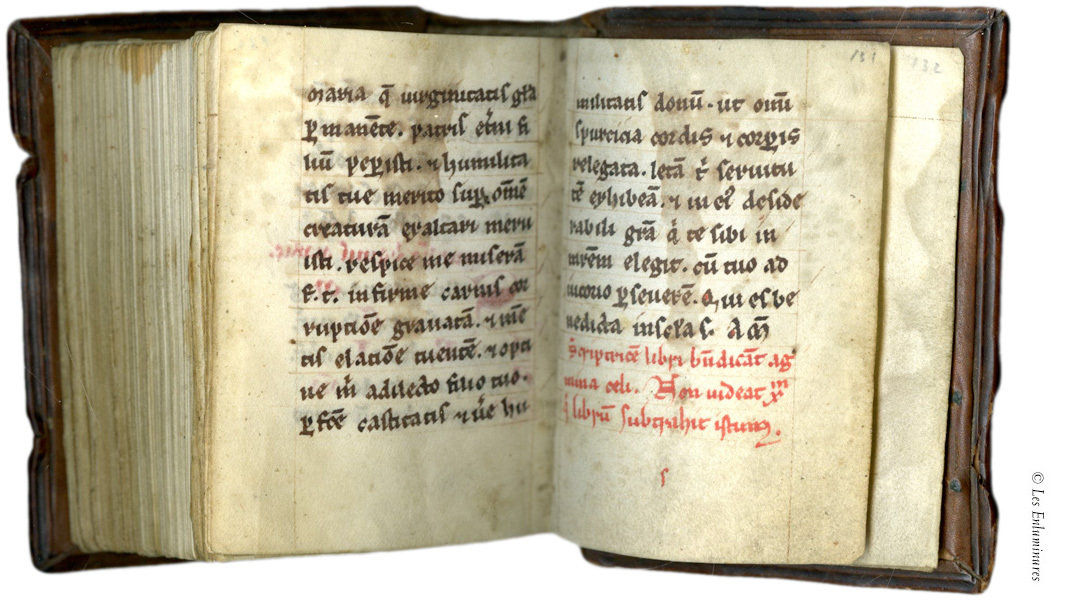 oraria q̄ uirginitatis gr̄a
ꝑmanēte. patris et̄ni fi
liū peꝑisti. ⁊ humilita
tis tue merito suꝑ om̄ē
creaturā exaltari meru
isti. respice me miserā
f. t̄. infirme carnis cor
ruptiōe grauatā. ⁊ mē
tis elatiōe tuentē. ⁊ opti
ne m̄ a dilecto filio tuo.
ꝑfc̄e castitatis ⁊ ue hu
militatis donū. ut om̄i
spurcicia cordis ⁊ corꝑis
relegata. letā t̄ seruitu
tē exhibeā. ⁊ in eꝰ deside
rabili gr̄a q̄ te sibi in
mr̄em elegit. cū tuo ad
iutorio ꝑseuerē. Qui es be
nedicta in scl̄a s. Am̄
Scriptricē libri bn̄dicāt ag
mina celi. Non uideat xp̄m
q̄ librū subtrahit istum.
131
132
© Les Enluminures